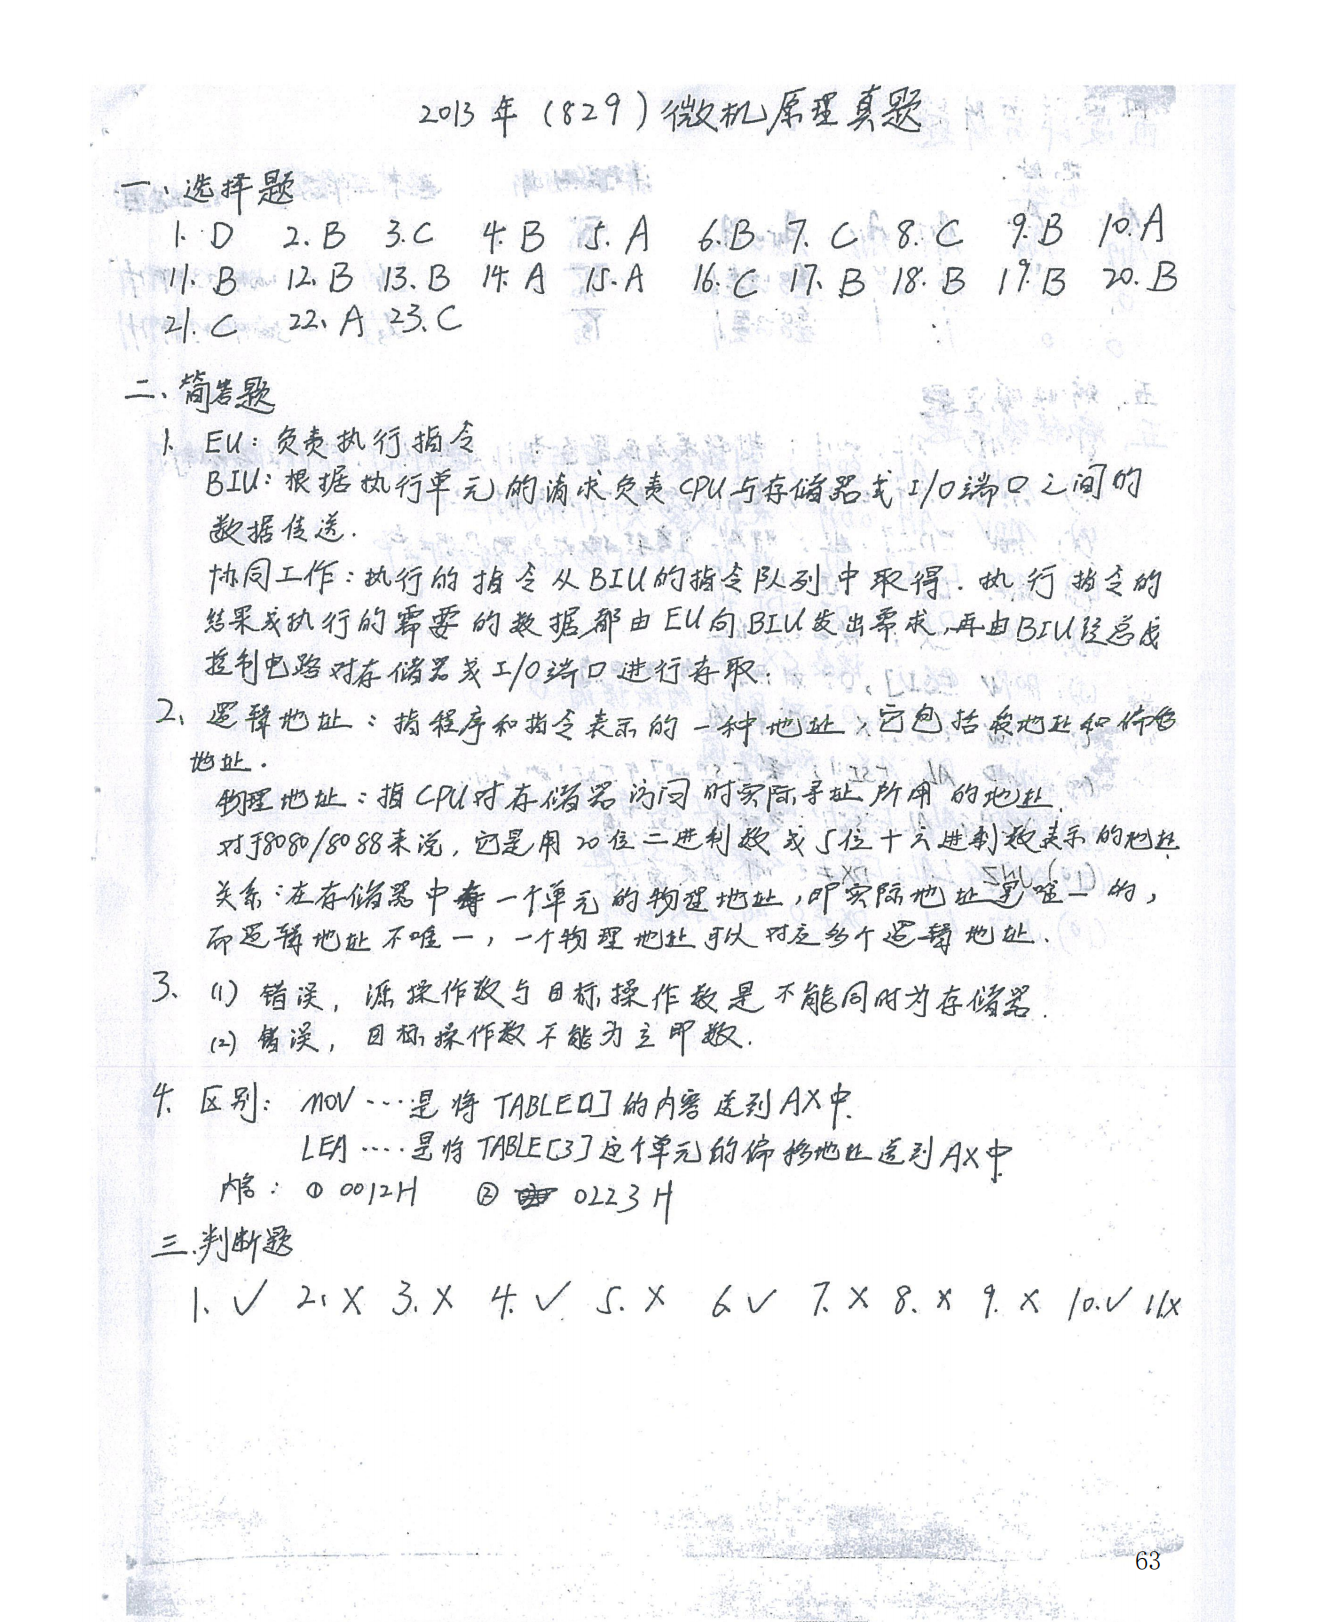 2013年(829)微机原理真题
一、选择题
1. D 2. B 3. C 4. B 5. A 6. B 7. C 8. C 9. B 10. A
11. B 12. B 13. B 14. A 15. A 16. C 17. B 18. B 19. B 20. B
21. C 22. A 23. C
二、简答题
1. EU：负责执行指令
BIU：根据执行单元的请求负责CPU与存储器或I/O端口之间的
数据传送.
协同工作：执行的指令从BIU的指令队列中取得.执行指令的
结果或执行的需要的数据都由EU向BIU发出需求,再由BIU经总线
控制电路对存储器或I/O端口进行存取.
2、逻辑地址：指程序和指令表示的一种地址,它包括段地址和偏移
地址.
物理地址：指CPU对存储器访问时实际寻址所用的地址.
对于8080/8088来说,它是用20位二进制数或5位十六进制数表示的地址.
关系：在存储器中 一个单元的物理地址,即实际地址是唯一的,
而逻辑地址不唯一,一个物理地址可以对应多个逻辑地址.
3、(1) 错误,源操作数与目标操作数是不能同时为存储器.
(2) 错误,目标操作数不能为立即数.
4. 区别：MOV ····是将TABLE[]的内容送到AX中.
LEA ····是将TABLE[3]这个单元的偏移地址送到AX中
内容：① 0012H ② 0223H
三.判断题
1. ✓ 2. × 3. × 4. ✓ 5. × 6. ✓ 7. × 8. × 9. × 10. ✓ 11×
63